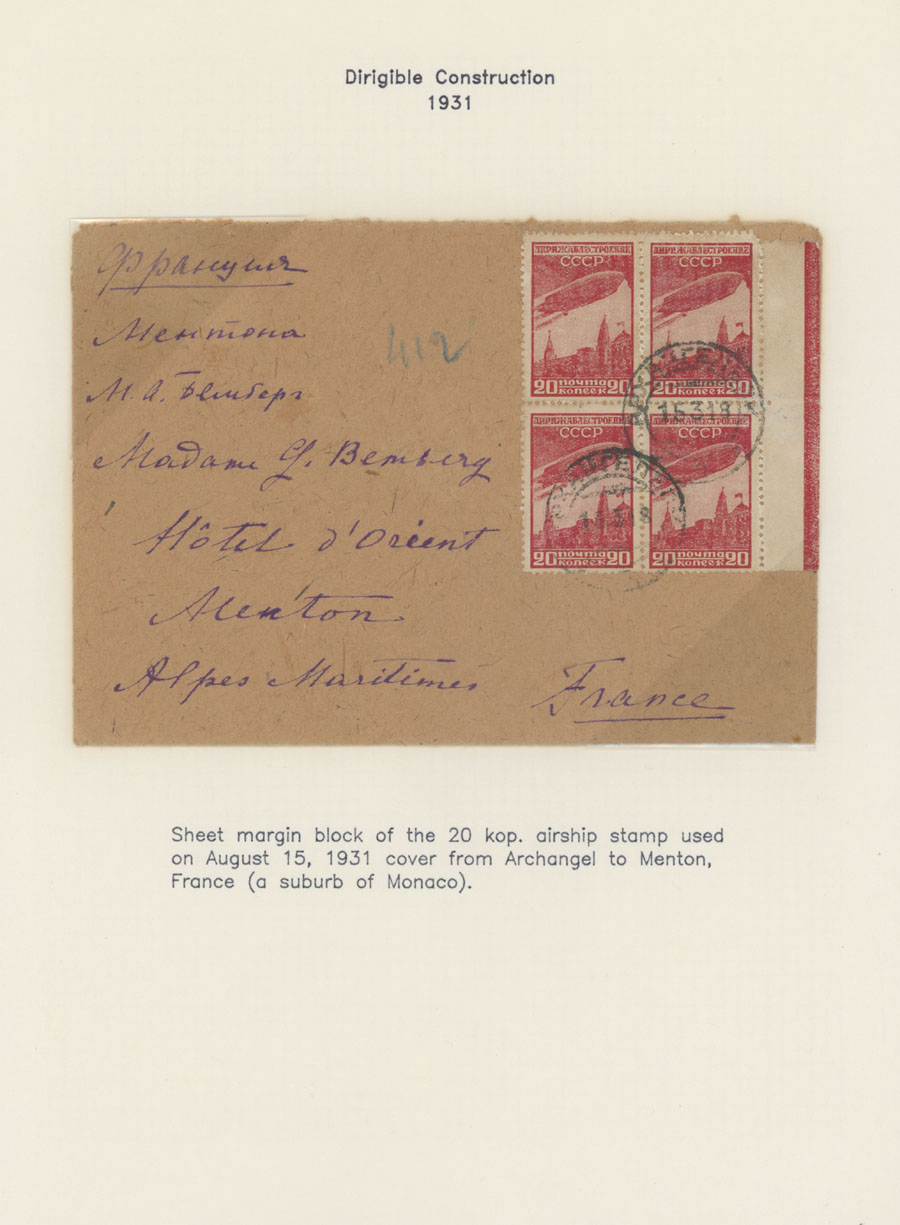 Dirigible Construction
1931
Франция
Ментона
М. А. Бемберг
Madame G. Bemberg
Hôtel d'Orient
Menton
Alpes Maritimes
France
412
ДИРИЖАБЛЕСТРОЕНИЕ
СССР
20 почта 20
копеек
ДИРИЖАБЛЕСТРОЕНИЕ
СССР
20 почта 20
копеек
ДИРИЖАБЛЕСТРОЕНИЕ
СССР
20 почта 20
копеек
ДИРИЖАБЛЕСТРОЕНИЕ
СССР
20 почта 20
копеек
Sheet margin block of the 20 kop. airship stamp used
on August 15, 1931 cover from Archangel to Menton,
France (a suburb of Monaco).